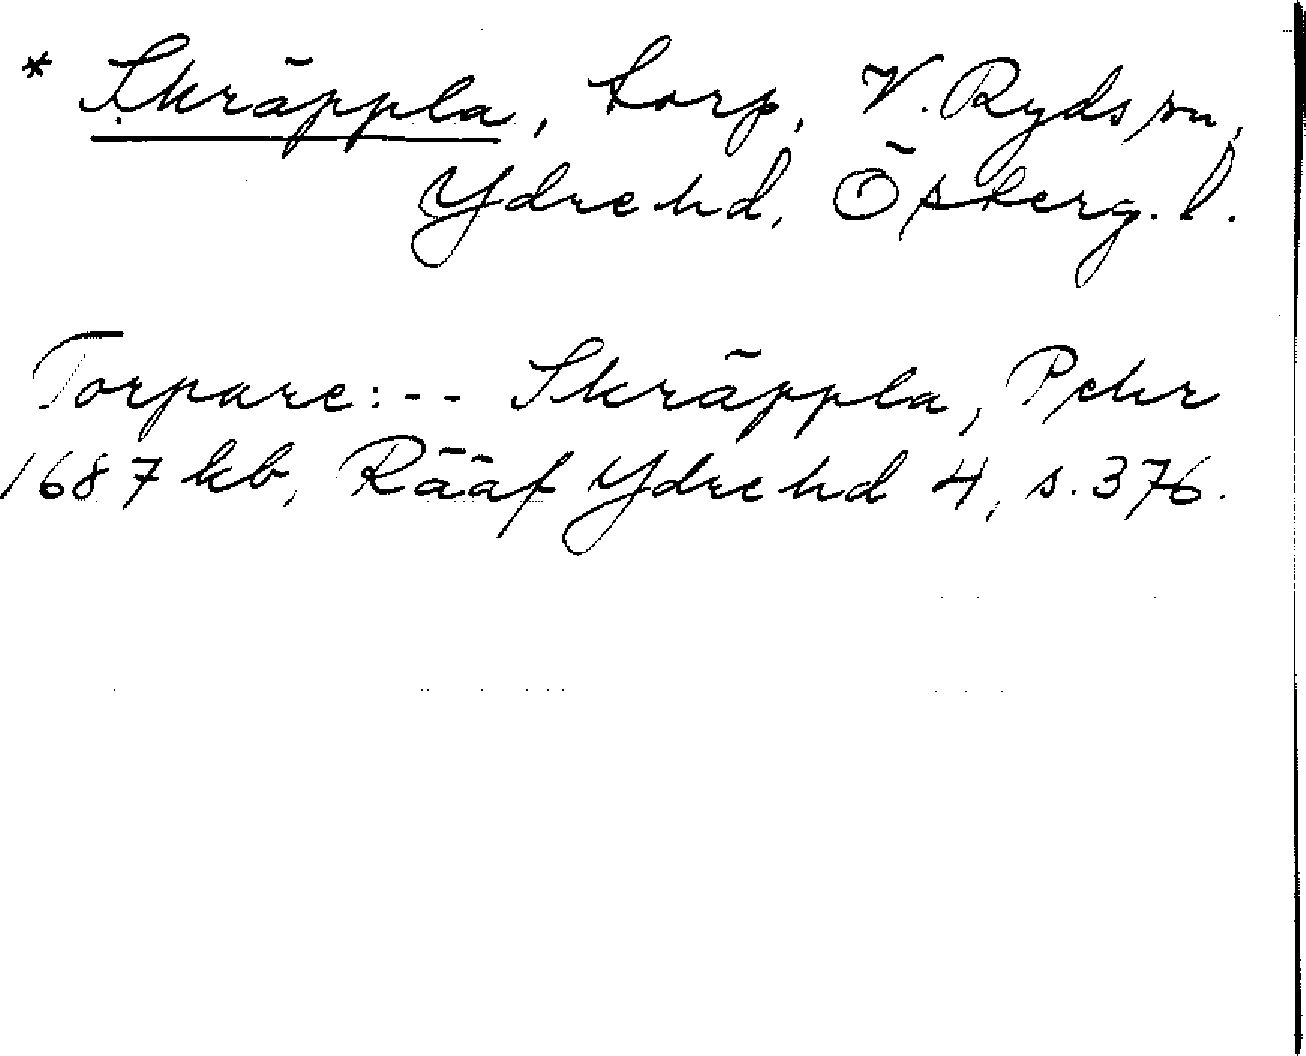 * Skräppla, torp, V. Ryds sn,
Ydre hd, Österg. l.
Torpare: -- Skräppla, Pehr
1687 kb, Rääf Ydre hd 4, s. 376.